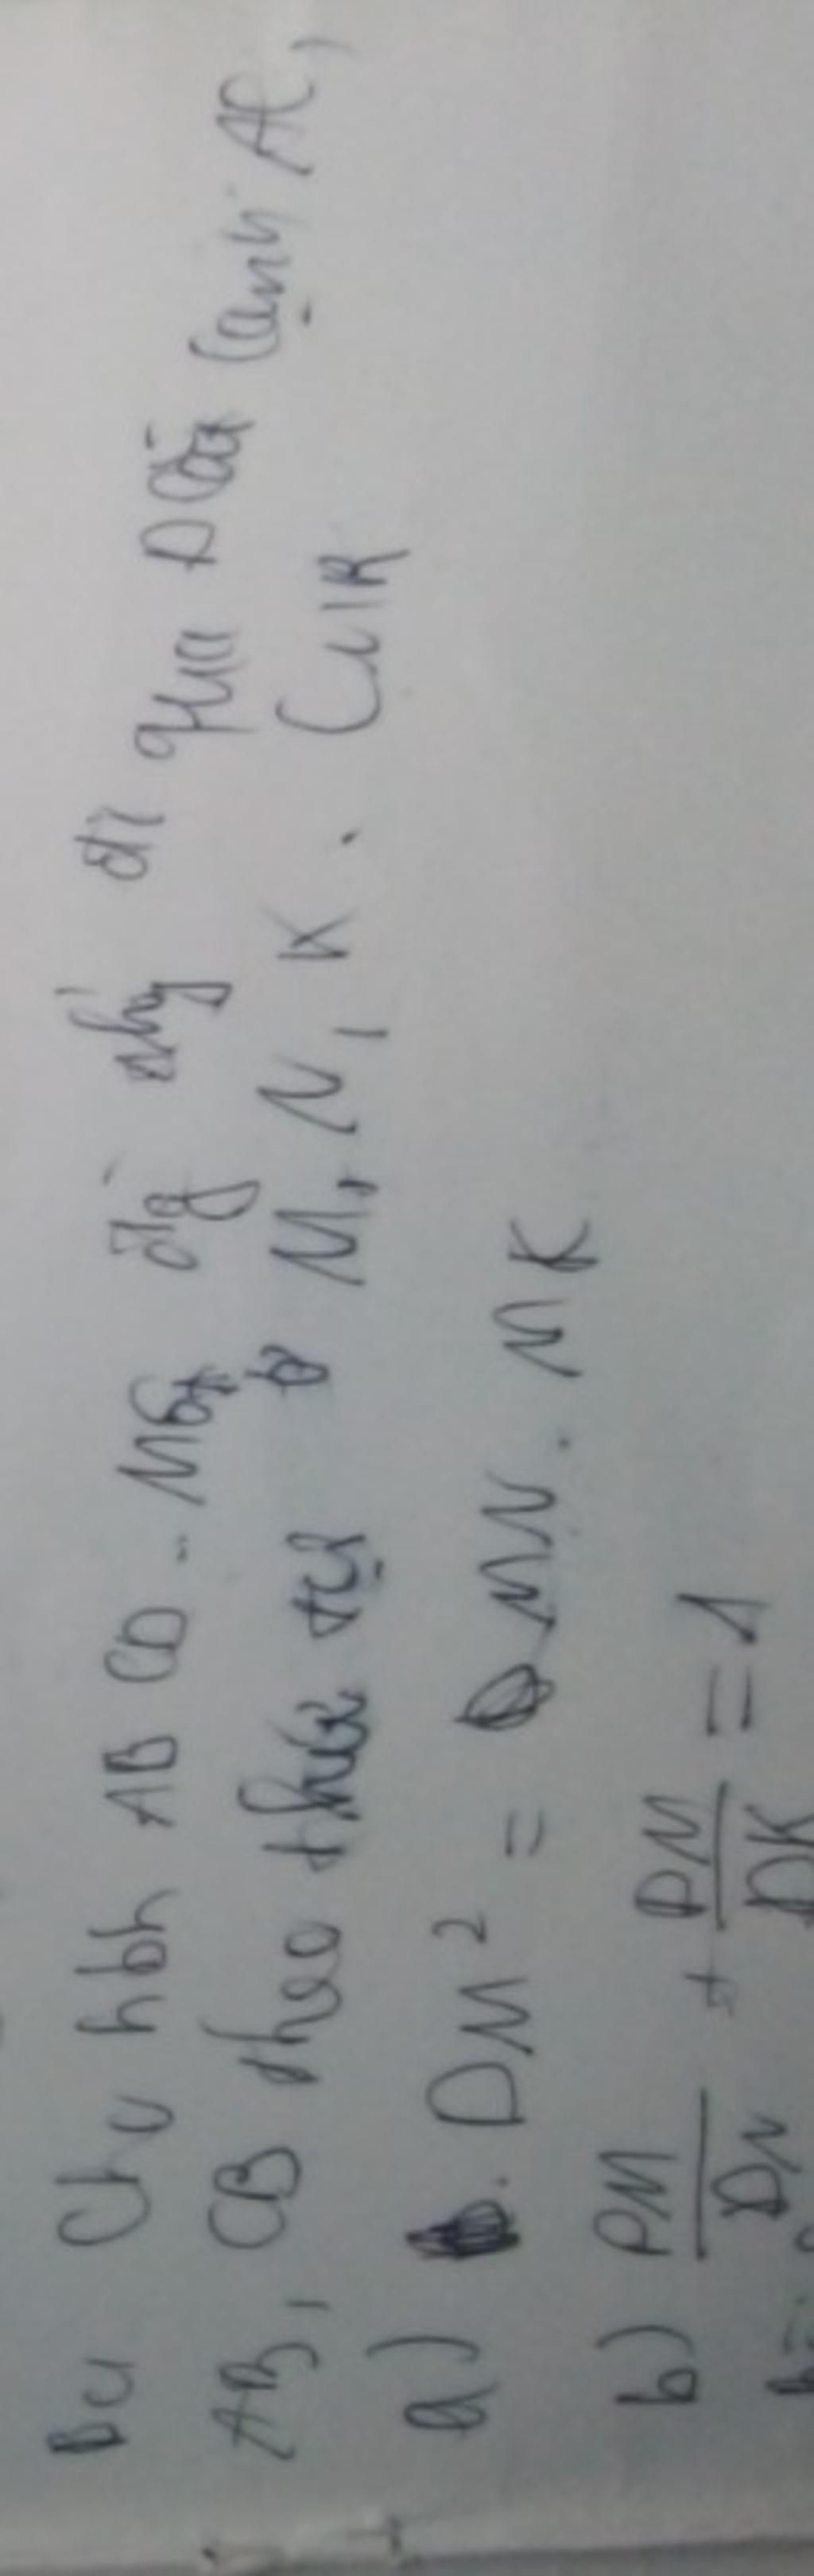 Bài Cho hbh ABCD. Một đg thẳng đi qua D cắt cạnh AC,
AB, CB theo thứ tự ở M, N, K. CMR
a) DM² = MN. MK
b) DM/DN + DM/DK = 1